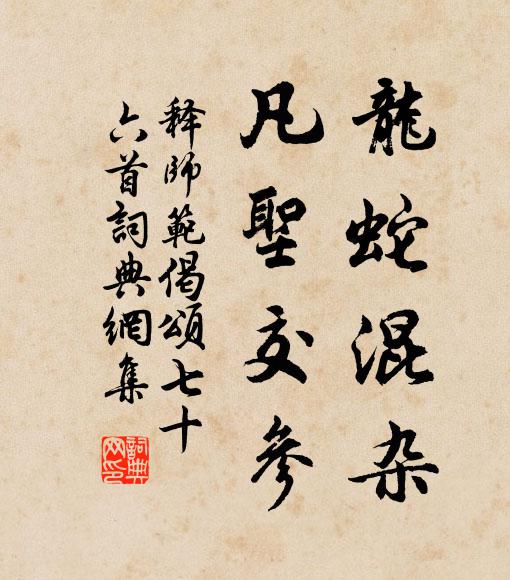 龍蛇混杂
凡聖交參
释師範偈頌七十
六首詞典網集
詞典
网印